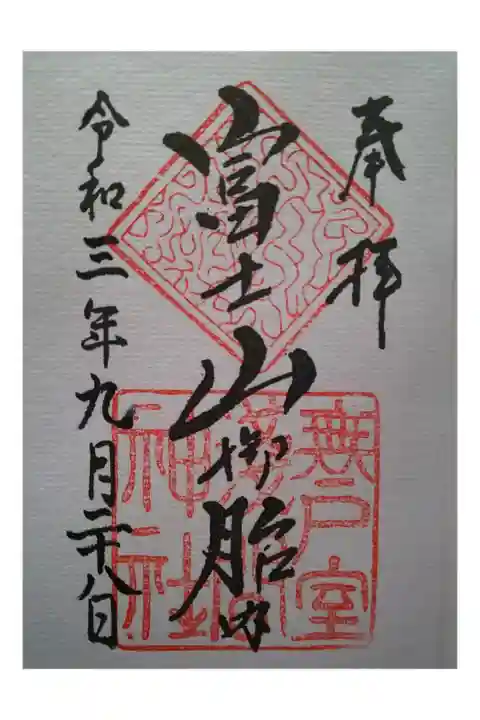 奉拝
富士山御胎内
無戸室浅間神社
令和三年九月二十八日